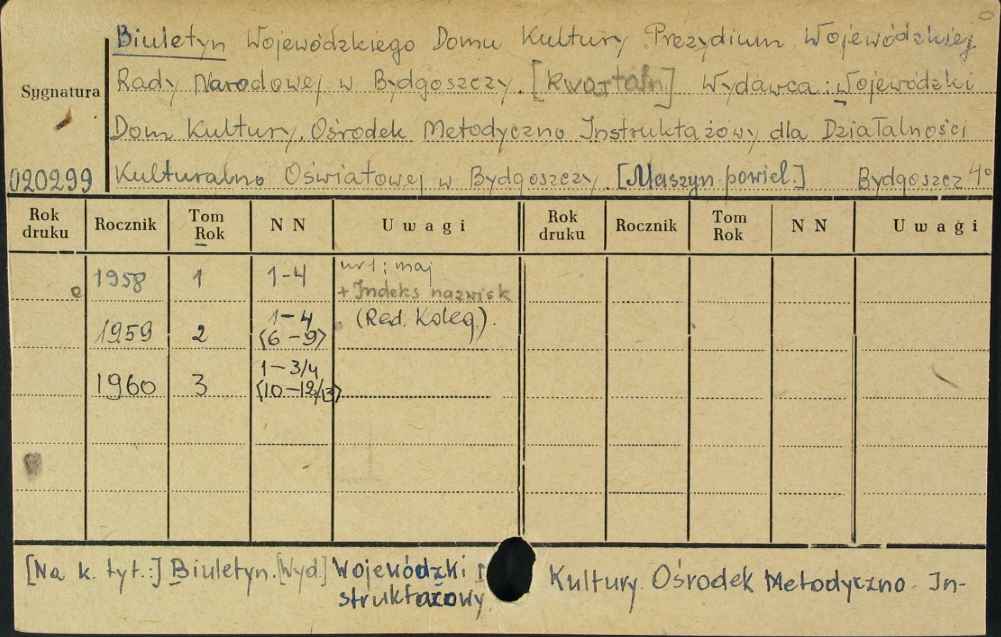 Biuletyn Wojewódzkiego Domu Kultury Prezydium Wojewódzkiej
Rady Narodowej w Bydgoszczy. [Kwartaln] Wydawca: Wojewódzki
Sygnatura
Dom Kultury. Ośrodek Metodyczno Instruktażowy dla Działalności
020299 Kulturalno Oświatowej w Bydgoszczy. [Maszyn. powiel.] Bydgoszcz 4°
Rok druku Rocznik Tom Rok N N Uwagi Rok druku Rocznik Tom Rok N N Uwagi
1958 1 1-4 nr 1: maj
+ Indeks nazwisk
1959 2 1-4 (Red. Koleg.).
(6-9)
1960 3 1-3/4
(10-12/13)
[Na k. tyt.:] Biuletyn. [Wyd.] Wojewódzki Kultury. Ośrodek Metodyczno-In-
struktażowy